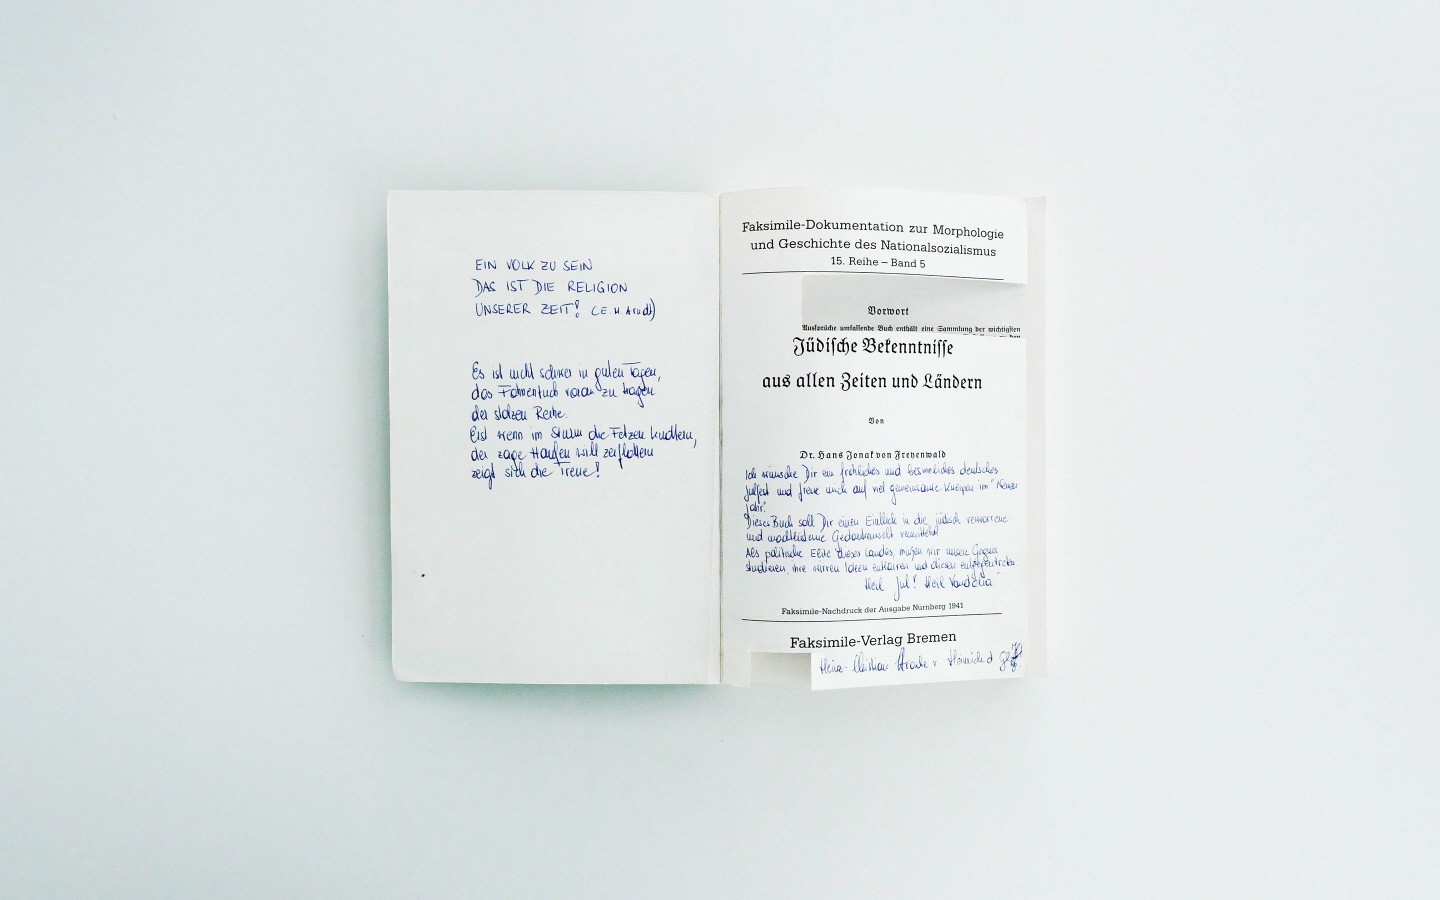 EIN VOLK ZU SEIN
DAS IST DIE RELIGION
UNSERER ZEIT! (E. M Arndt)
Es ist nicht schwer in guten Tagen,
das Fahnentuch voran zu tragen
der stolzen Reihe.
Erst wenn im Sturm die Fetzen knattern,
der zage Haufen will zerflattern
zeigt sich die Treue!
Faksimile-Dokumentation zur Morphologie
und Geschichte des Nationalsozialismus
15. Reihe – Band 5
Vorwort
Aussprüche umfassende Buch enthält eine Sammlung der wichtigsten
Jüdische Bekenntnisse
aus allen Zeiten und Ländern
Von
Dr. Hans Jonak von Freyenwald
Ich wünsche Dir ein fröhliches und besinnliches deutsches
Julfest und freue mich auf viel gemeinsame Kneipen im "Neuen
Jahr".
Dieses Buch soll Dir einen Einblick in die jüdisch verworrene
und Gedankenwelt vermitteln!
Als politische Elite dieses Landes, müßen wir unsere Gegner
studieren, ihre wirren Ideen und diesen entgegentreten.
Heil Jul! Heil Vandalia
Faksimile-Nachdruck der Ausgabe Nürnberg 1941
Faksimile-Verlag Bremen
Heinz-Christian Strache v.